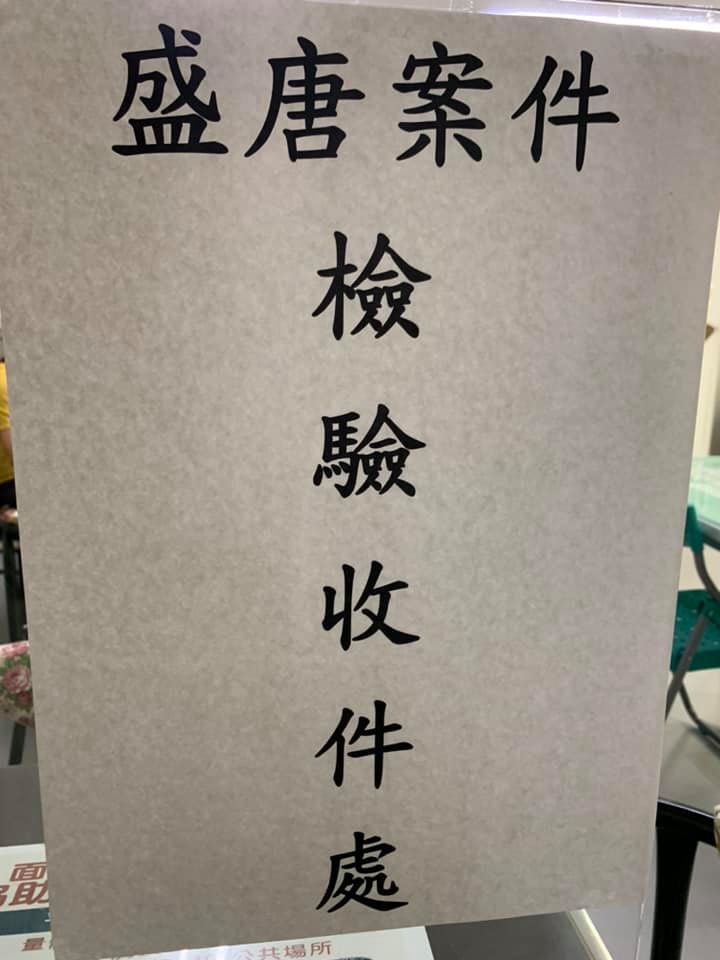 盛唐案件
檢驗收件處
面
協助
公共場所